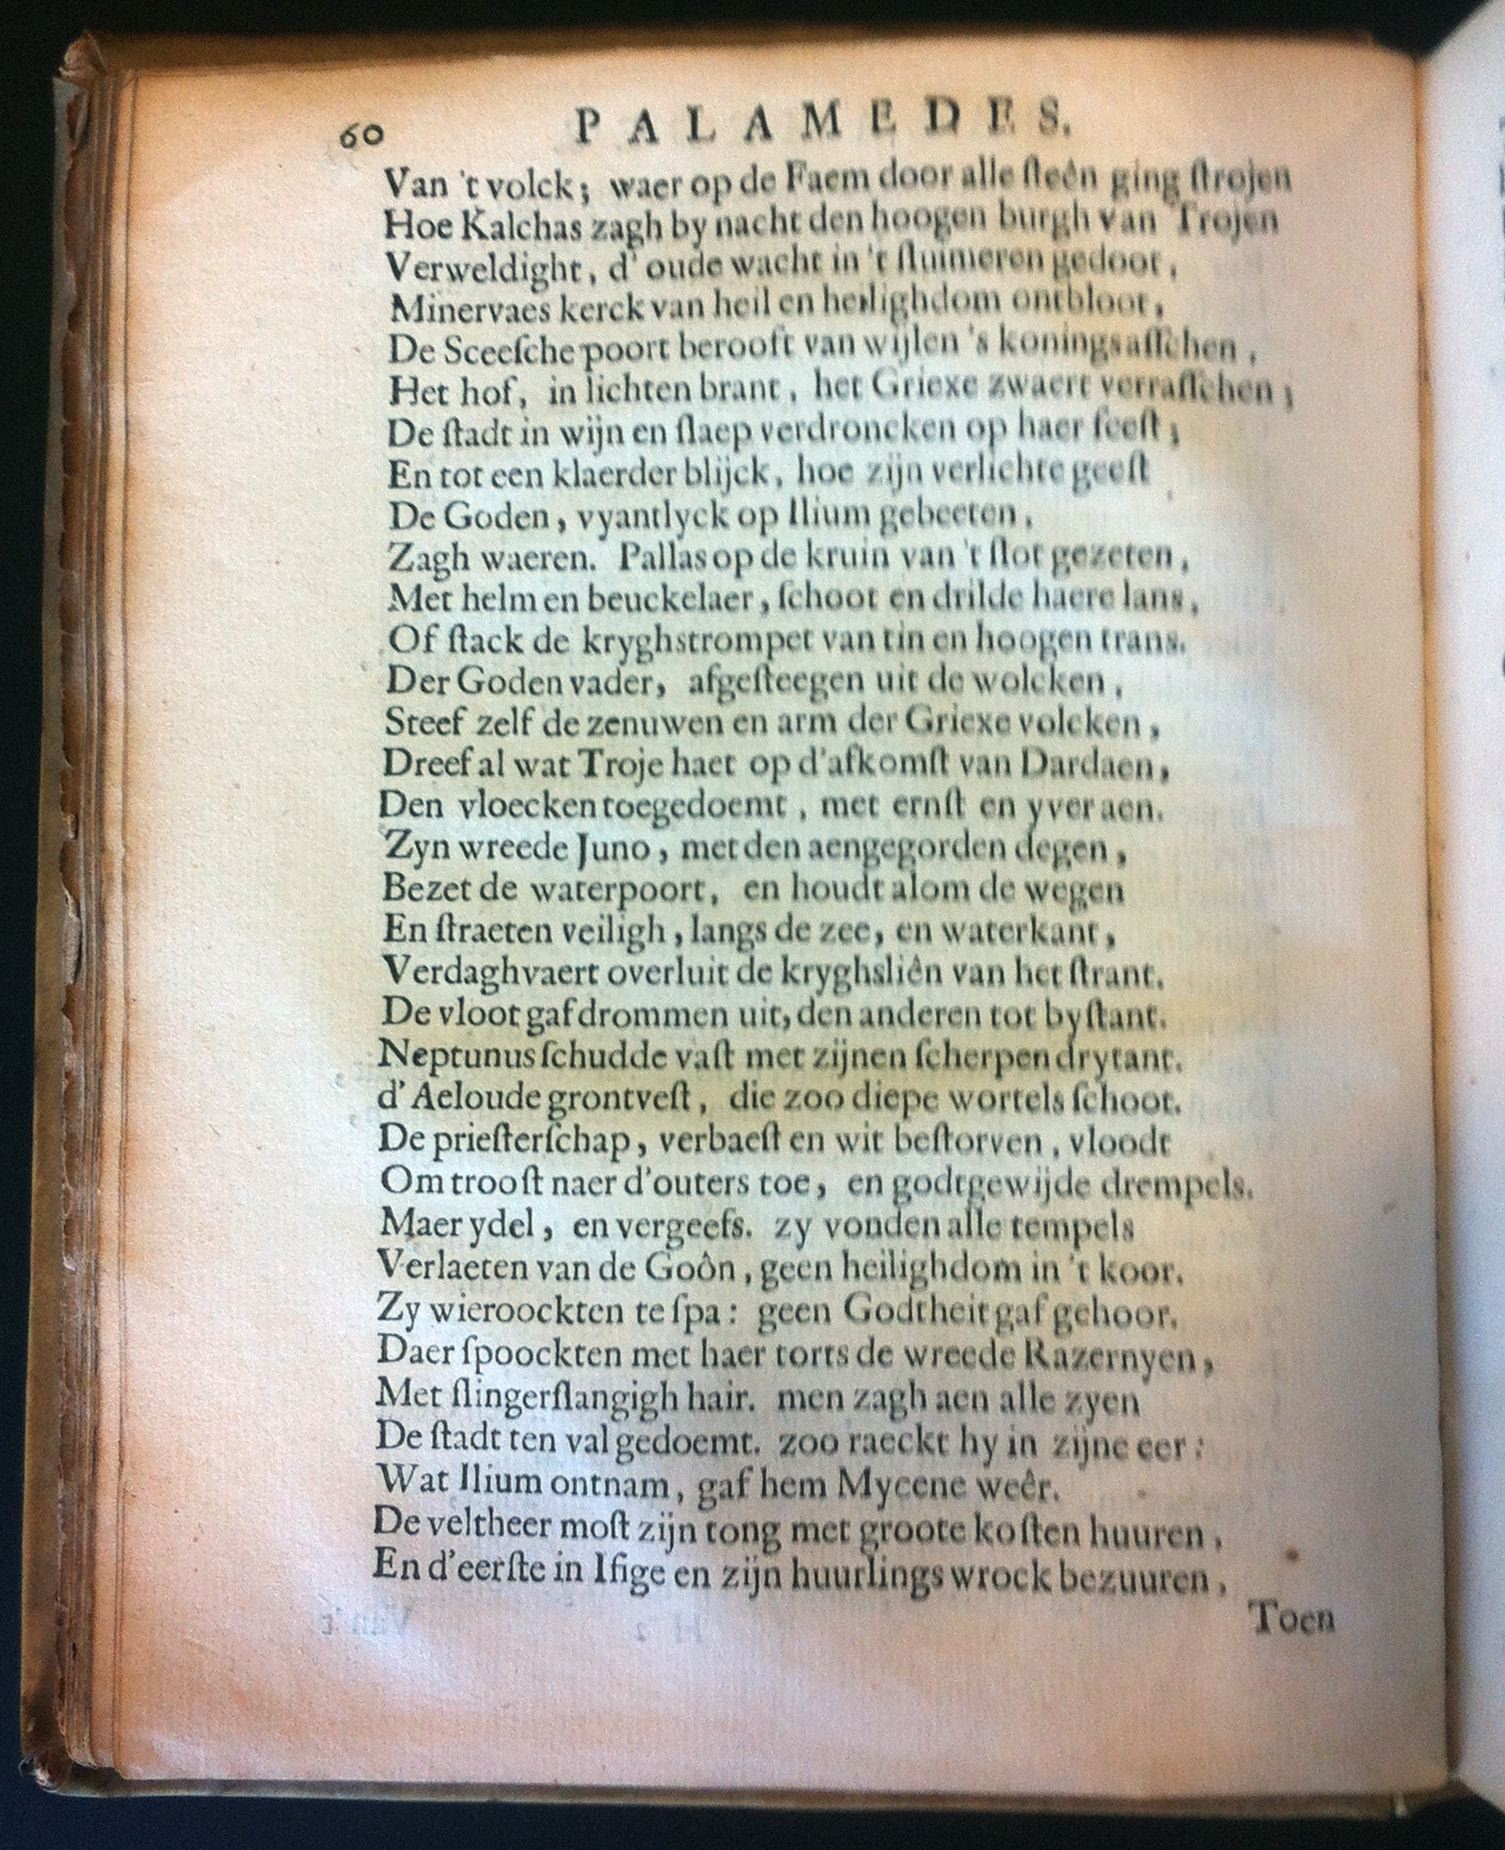 60 PALAMEDES.
Van 't volck; waer op de Faem door alle ſteên ging ſtrojen
Hoe Kalchas zagh by nacht den hoogen burgh van Trojen
Verweldight, d' oude wacht in 't ſluimeren gedoot,
Minervaes kerck van heil en heilighdom ontbloot,
De Sceeſche poort berooft van wijlen 's konings aſſchen,
Het hof, in lichten brant, het Griexe zwaert verraſſchen;
De ſtadt in wijn en ſlaep verdroncken op haer feeſt;
En tot een klaerder blijck, hoe zijn verlichte geeſt
De Goden, vyantlyck op Ilium gebeeten,
Zagh waeren. Pallas op de kruin van 't ſlot gezeten,
Met helm en beuckelaer, ſchoot en drilde haere lans,
Of ſtack de kryghstrompet van tin en hoogen trans.
Der Goden vader, afgeſteegen uit de wolcken,
Steef zelf de zenuwen en arm der Griexe volcken,
Dreef al wat Troje haet op d'afkomſt van Dardaen,
Den vloecken toegedoemt, met ernſt en yver aen.
Zyn wreede Juno, met den aengegorden degen,
Bezet de waterpoort, en houdt alom de wegen
En ſtraeten veiligh, langs de zee, en waterkant,
Verdaghvaert overluit de kryghsliên van het ſtrant.
De vloot gaf drommen uit, den anderen tot byſtant.
Neptunus ſchudde vaſt met zijnen ſcherpen drytant.
d' Aeloude grontveſt, die zoo diepe wortels ſchoot.
De prieſterſchap, verbaeſt en wit beſtorven, vloodt
Om trooſt naer d'outers toe, en godtgewijde drempels.
Maer ydel, en vergeefs. zy vonden alle tempels
Verlaeten van de Goôn, geen heilighdom in 't koor.
Zy wieroockten te ſpa: geen Godtheit gaf gehoor.
Daer ſpoockten met haer torts de wreede Razernyen,
Met ſlingerſlangigh hair. men zagh aen alle zyen
De ſtadt ten val gedoemt. zoo raeckt hy in zijne eer:
Wat Ilium ontnam, gaf hem Mycene weêr.
De veltheer moſt zijn tong met groote koſten huuren,
En d'eerſte in Iſige en zijn huurlings wrock bezuuren,
Toen